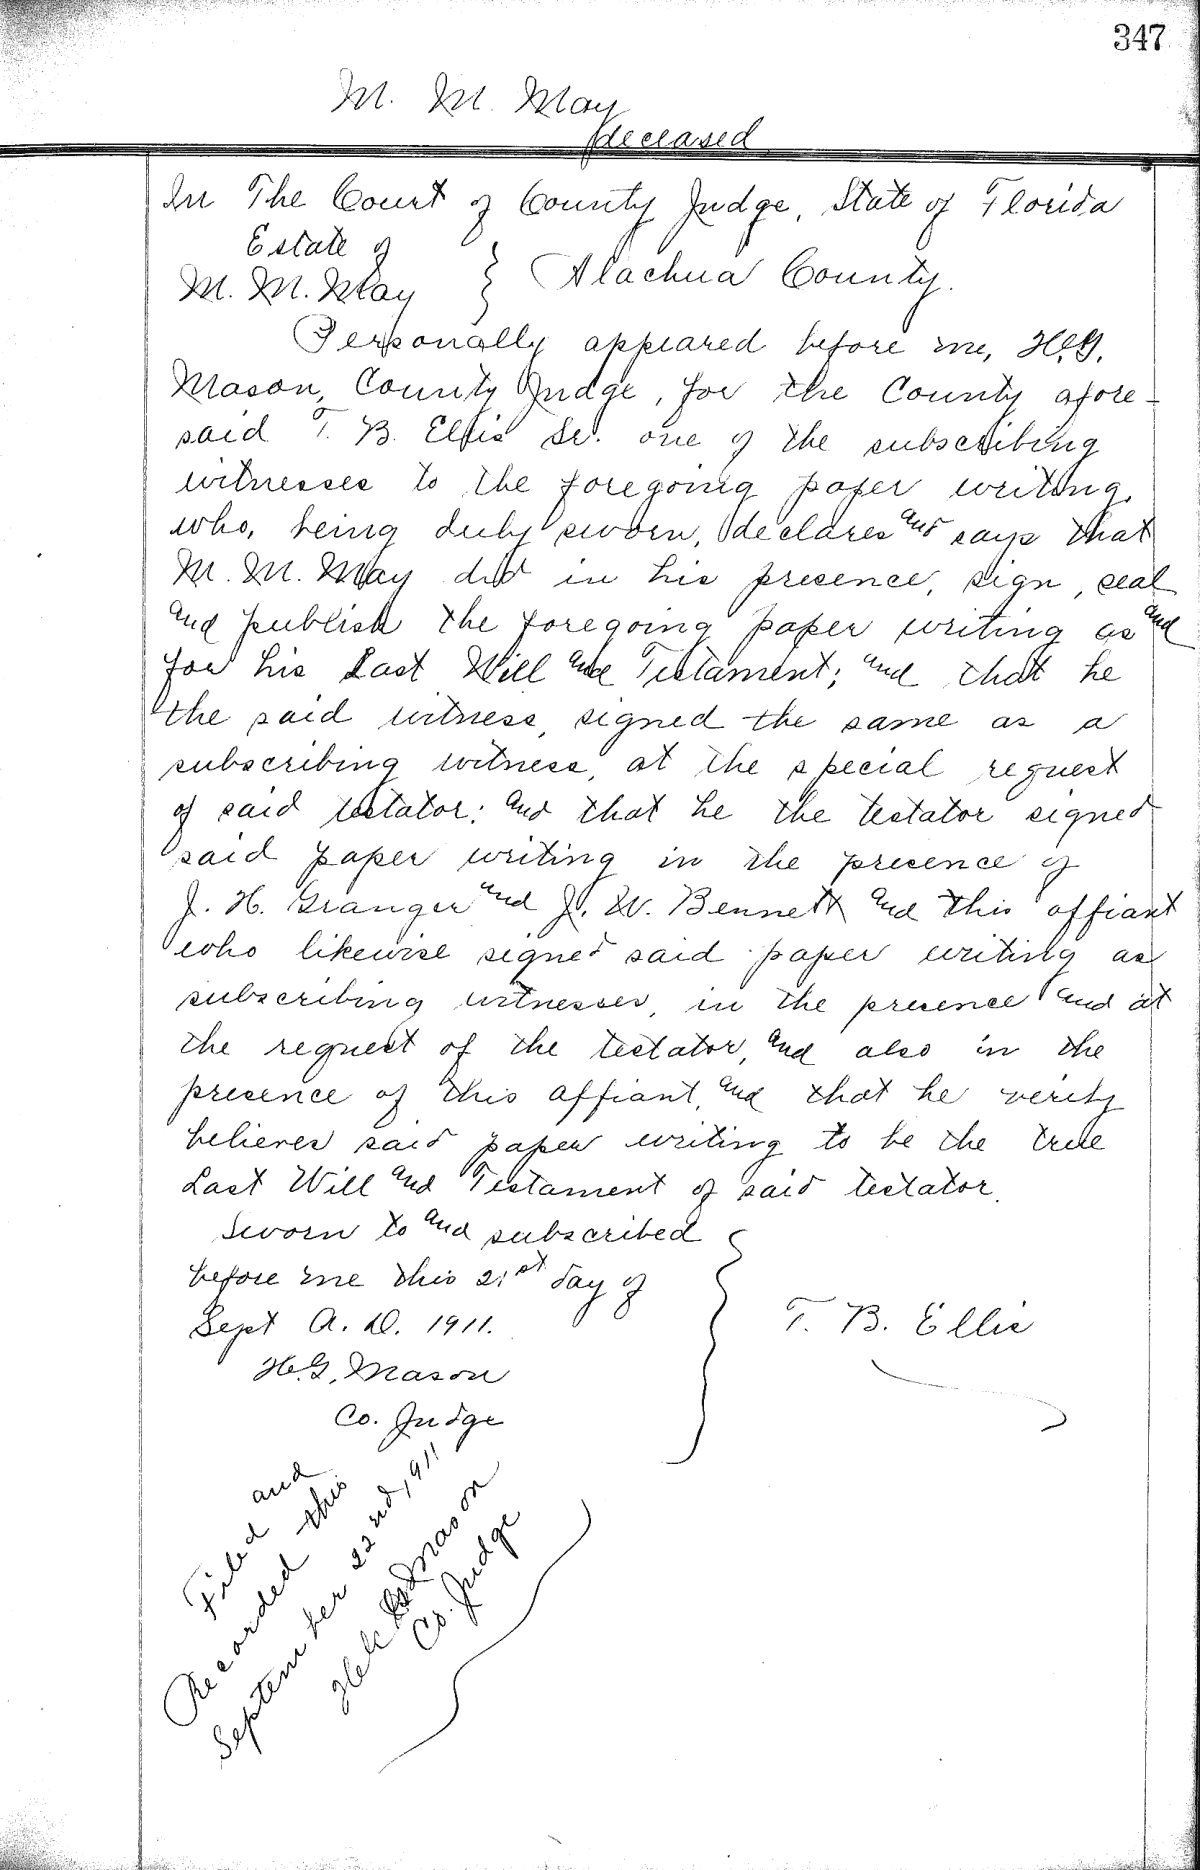 347
M. M. May
deceased
In The Court of County Judge, State of Florida
Estate of
M. M. May } Alachua County.
Personally appeared before me, H. G.
Mason, County Judge, for the County afore-
said T. B. Ellis Sr. one of the subscribing
witnesses to the foregoing paper writing,
who, being duly sworn, declares and says that
M. M. May did in his presence, sign, seal
and publish the foregoing paper writing as and
for his Last Will and Testament; and that he
the said witness, signed the same as a
subscribing witness, at the special request
of said testator: and that he the testator signed
said paper writing in the presence of
J. H. Granger and J. W. Bennett and this affiant
who likewise signed said paper writing as
subscribing witnesses, in the presence and at
the request of the testator, and also in the
presence of this affiant, and that he verily
believes said paper writing to be the true
Last Will and Testament of said testator.
Sworn to and subscribed
before me this 21st day of
Sept A. D. 1911.
T. B. Ellis
H. G. Mason
Co. Judge
Filed and
Recorded this
September 22nd, 1911
H. G. Mason
Co. Judge